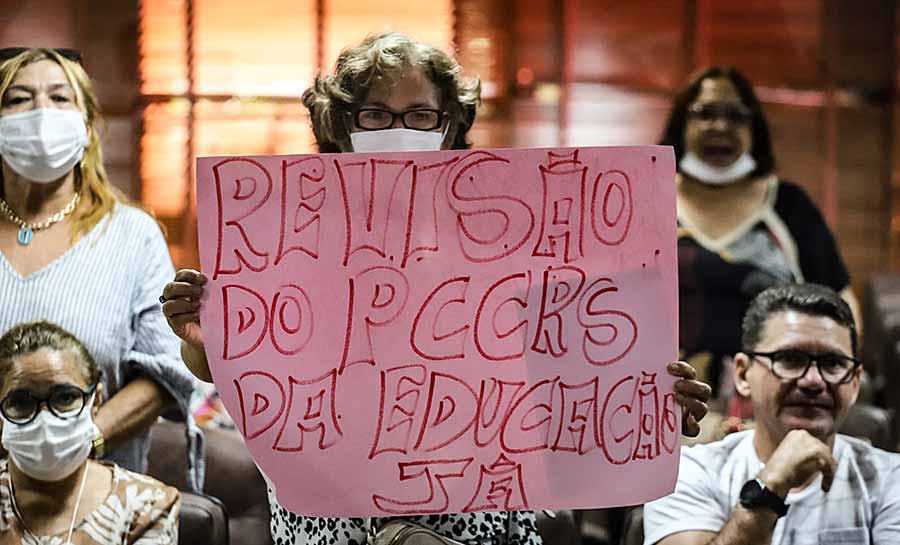 REVISÃO
DO PCCRS
DA EDUCAÇÃO
JÁ